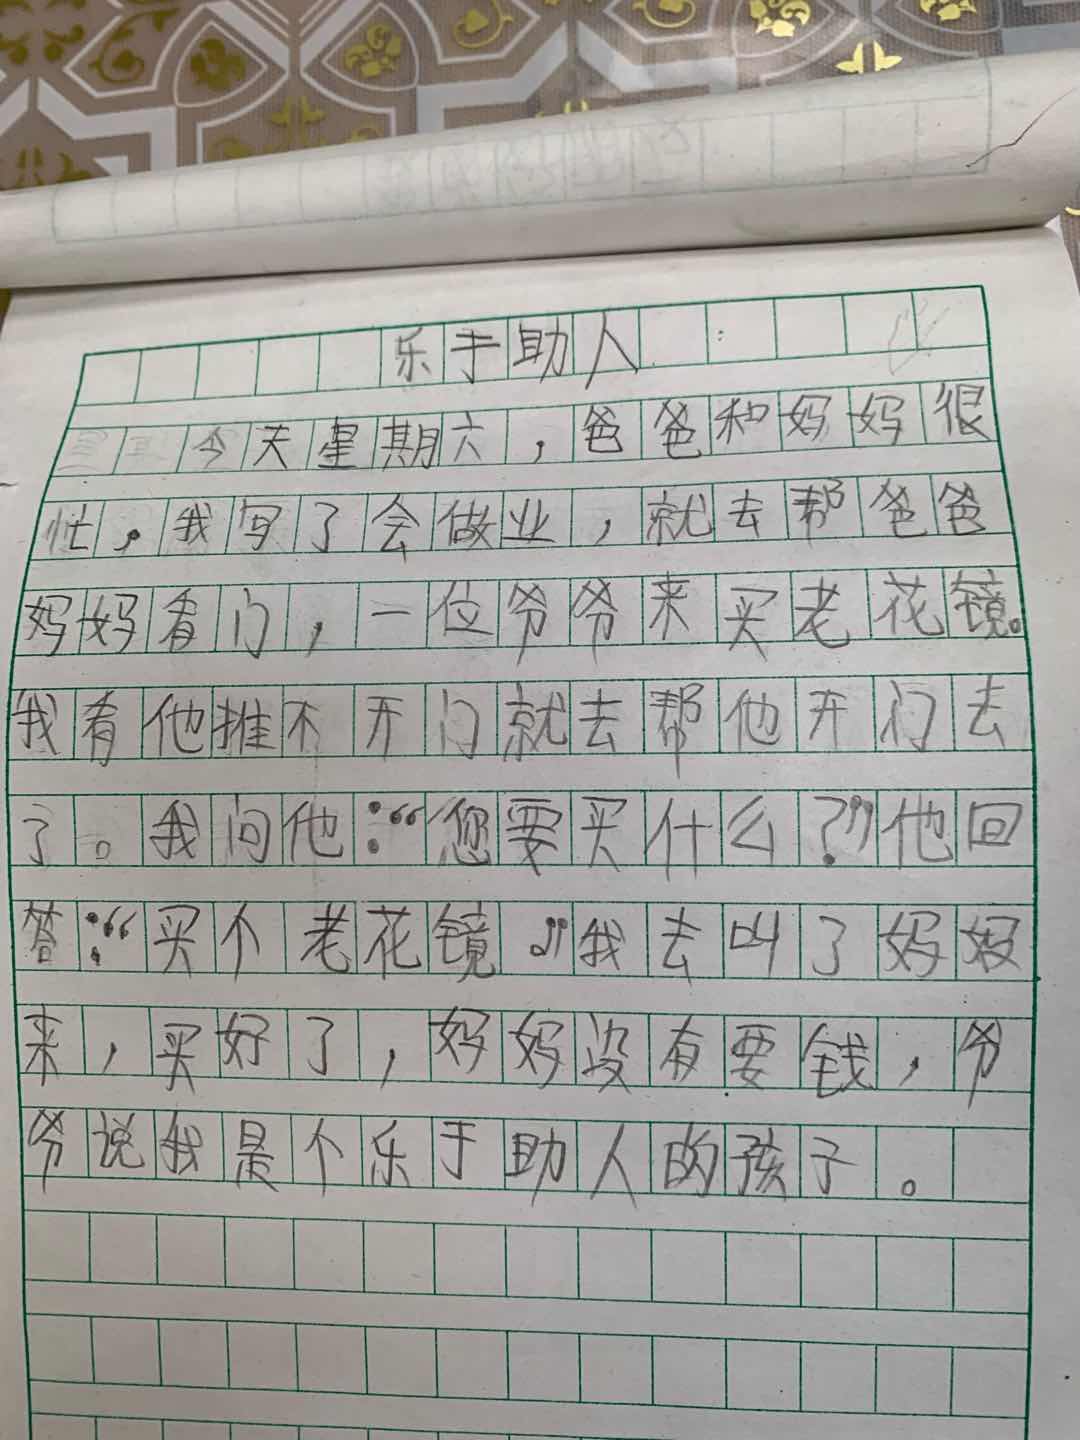 乐于助人
今天星期六，爸爸和妈妈很
忙，我写了会做业，就去帮爸爸
妈妈看门，一位爷爷来买老花镜。
我看他推不开门就去帮他开门去
了。我问他：“您要买什么？”他回
答：“买个老花镜。”我去叫了妈妈
来，买好了，妈妈没有要钱，爷
爷说我是个乐于助人的孩子。